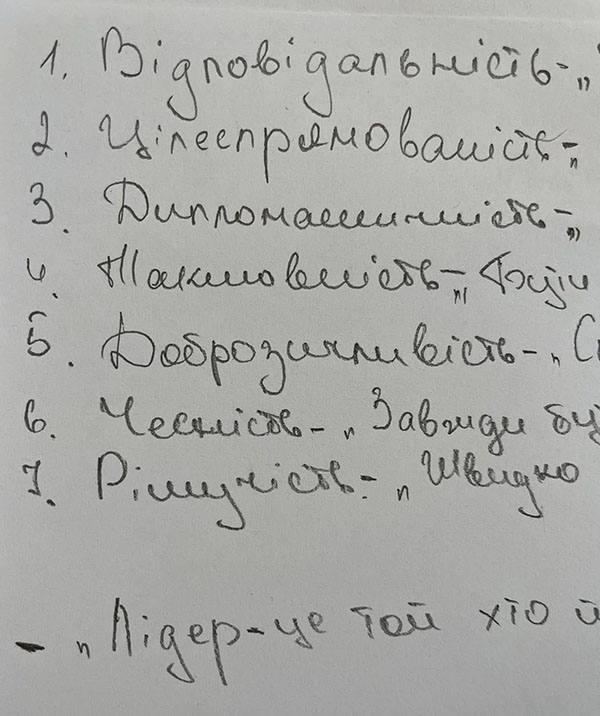 1. Відповідальність - „
2. Цілеспрямованість - „
3. Дипломатичність - „
4. Тактовність - „
5. Доброзичливість - „
6. Чесність - „Завжди
7. Рішучість - „Швидко
- „Лідер - це той хто